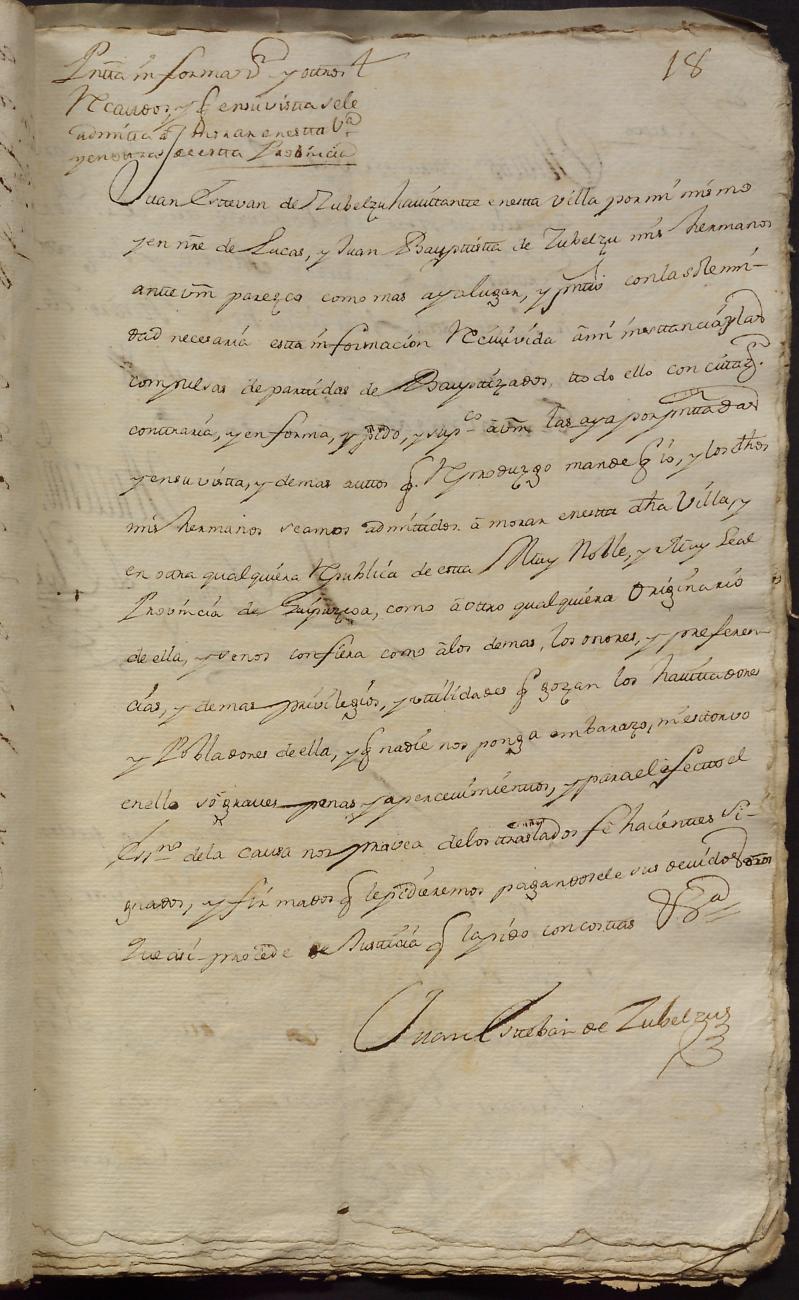 18
Pntta informaon y ottros
Recaudos, y q ensuvistta sele
admitta a morar enestta Va
yenottras de estta Provincia
Juan Esttevan de Zubelzu havittantte enestta villa por mi mismo
yen nre de Lucas, y Juan Bapttistta de Zubelzu mis hermanos
antte vm parezco como mas aya lugar, y pntto conla solemni-
dad necesaria estta informacion Recivida âmi insttancia, y las
compulsas de parttidas de Bapttizados, ttodo ello con cittaon
conttraria, y en forma, y pido, y supco â vm las aya por pnttadas
y ensu vistta, y demas auttos q. Reproduzgo mande q Yo, y los dhos
mis hermanos seamos admittidos â morar enestta dha Villa, y
en otra qualquiera Republica de estta Muy Noble, y Muy Leal
Provincia de Guipuzcoa, como âottro qualquiera Originario
de ella, y senos confiera como âlos demas, los onores, y preferen-
cias, y demas privilegios, y uttilidades q gozan los havittadores
y Pobladores de ella, y q nadie nos ponga embarazo, ni esttorvo
enello só graves penas y apercevimienttos, y para el efectto el
Essno dela causa nos provea delos ttraslados fe hacienttes si-
gnados, y firmados q le pidieremos pagandosele sus devidos dros
que asi procede de Justticia q la pido con costtas &a
Juan Esteban de Zubelzu